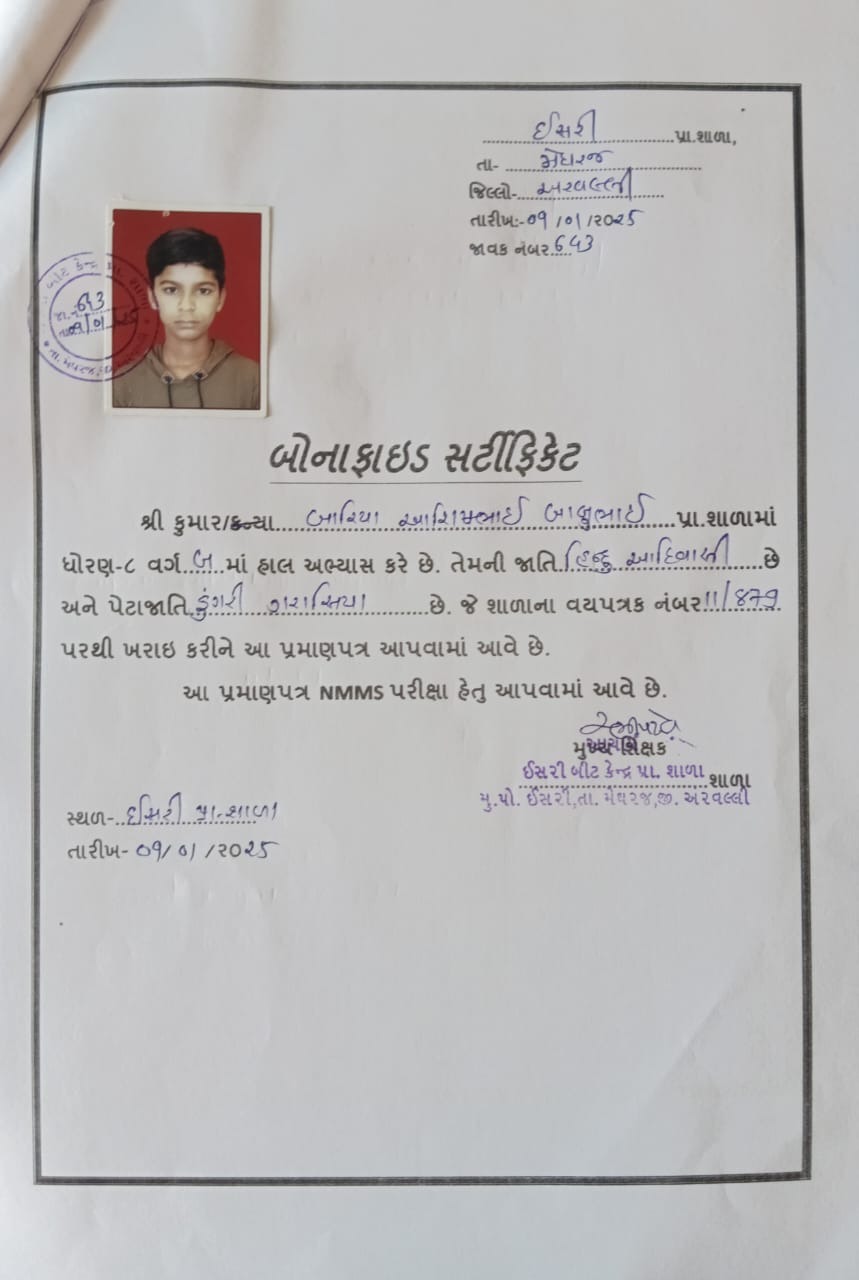 ઈસરી પ્રા.શાળા,
તા- મેઘરજ
જિલ્લો- અરવલ્લી
તારીખ:- ૦૧/૦૧/૨૦૨૫
જાવક નંબર ૬૫૩
બીટ કેન્દ્ર પ્રા. શાળા
જા.નં ૬૫૩
તા ૦૧/૦૧/૨૫
તા. મેઘરજ,
બોનાફાઇડ સર્ટીફિકેટ
શ્રી કુમાર/કન્યા બારિયા આશિમભાઈ બાબુભાઈ પ્રા.શાળામાં
ધોરણ-૮ વર્ગ બ માં હાલ અભ્યાસ કરે છે. તેમની જાતિ હિન્દુ આદિવાસી છે
અને પેટાજાતિ ડુંગરી ગરાસિયા છે. જે શાળાના વયપત્રક નંબર ૧૧/૪૭૧
પરથી ખરાઇ કરીને આ પ્રમાણપત્ર આપવામાં આવે છે.
આ પ્રમાણપત્ર NMMS પરીક્ષા હેતુ આપવામાં આવે છે.
મુખ્ય શિક્ષક
ઈસરી બીટ કેન્દ્ર પ્રા. શાળા શાળા
મુ.પો. ઈસરી,તા. મેઘરજ,જી. અરવલ્લી
સ્થળ- ઈસરી પ્રા-શાળા
તારીખ- ૦૧/૦૧/૨૦૨૫